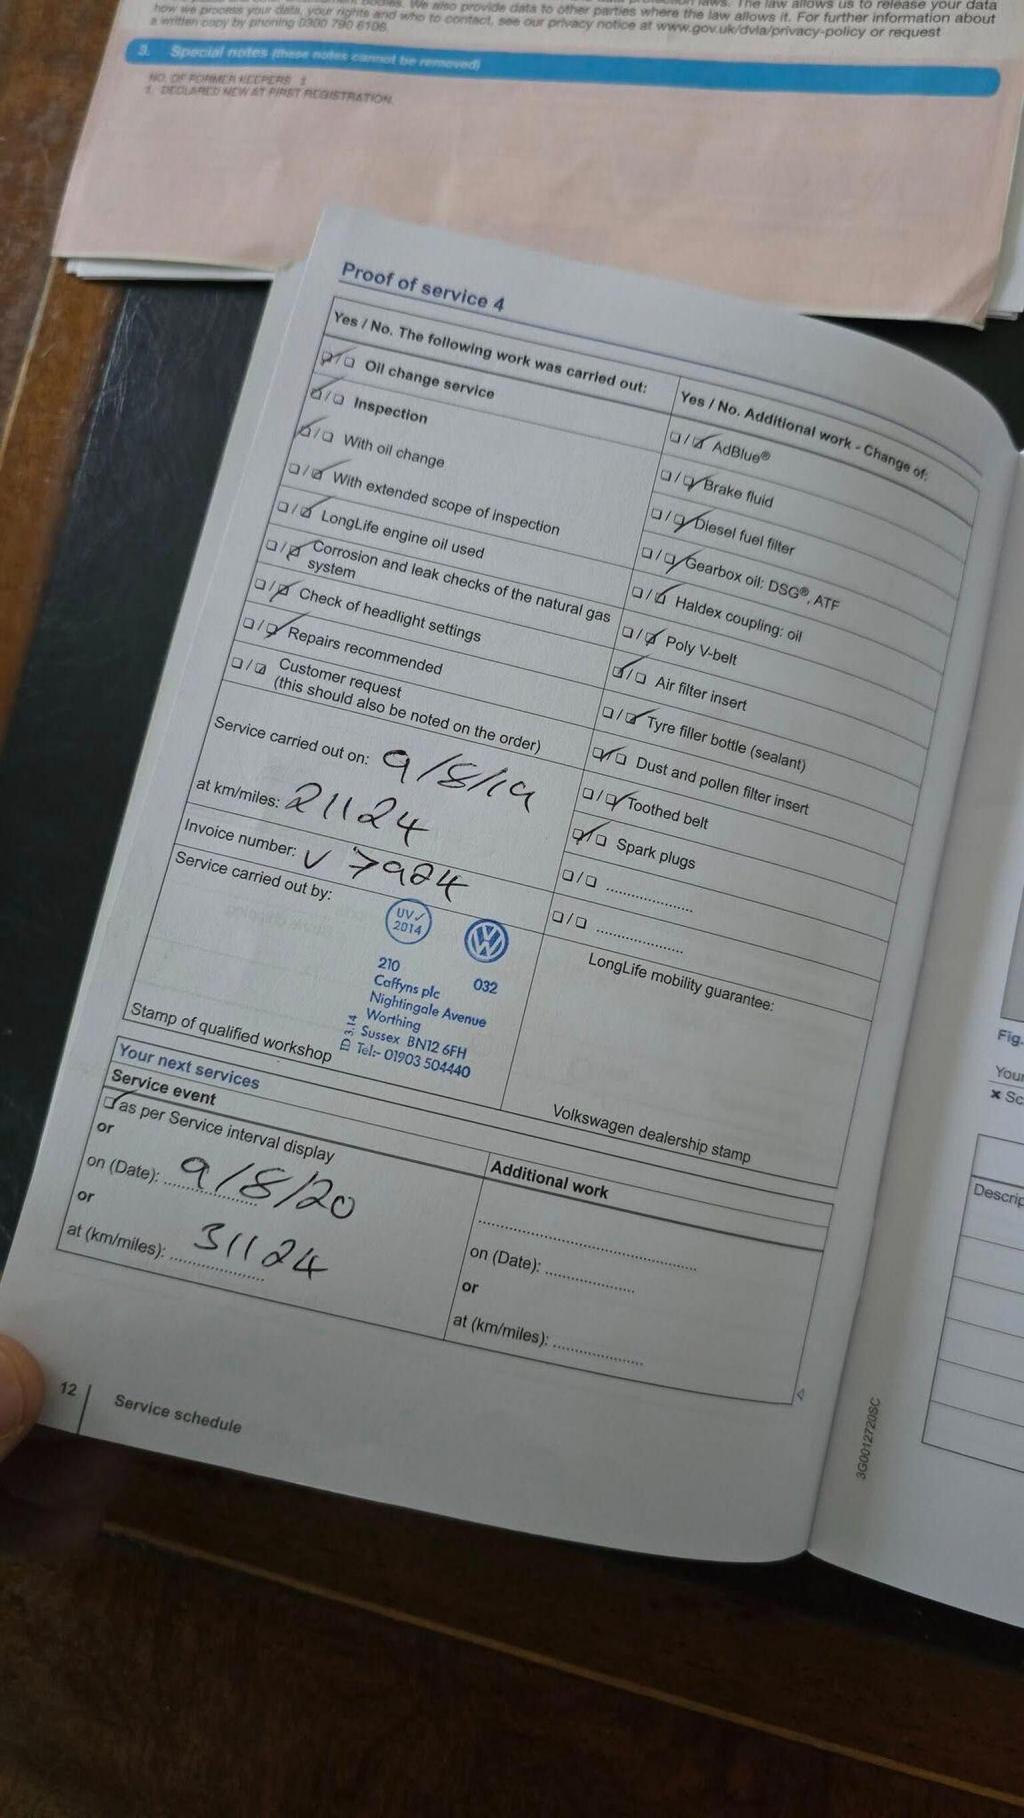 how we process your data, your rights and who to contact, see our privacy notice at www.gov.uk/dvla/privacy-policy or request
a written copy by phoning 0300 790 6106.
We also provide data to other parties where the law allows it. For further information about
The law allows us to release your data
3. Special notes (these notes cannot be removed)
NO. OF FORMER KEEPERS
1. DECLARED NEW AT FIRST REGISTRATION.
Proof of service 4
Yes / No. The following work was carried out:
Oil change service
Inspection
With oil change
With extended scope of inspection
LongLife engine oil used
Corrosion and leak checks of the natural gas
system
Check of headlight settings
Repairs recommended
Customer request
(this should also be noted on the order)
Yes / No. Additional work - Change of:
AdBlue®
Brake fluid
Diesel fuel filter
Gearbox oil: DSG®, ATF
Haldex coupling: oil
Poly V-belt
Air filter insert
Tyre filler bottle (sealant)
Dust and pollen filter insert
Toothed belt
Spark plugs
Service carried out on: 9/8/19
at km/miles: 21124
Invoice number: V 7924
Service carried out by:
UV✓
2014
VW
210 032
Caffyns plc
Nightingale Avenue
Worthing
Sussex BN12 6FH
Tel:- 01903 504440
D 3.14
Stamp of qualified workshop
LongLife mobility guarantee:
Volkswagen dealership stamp
Your next services
Service event
as per Service interval display
or
on (Date): 9/8/20
or
at (km/miles): 31124
Additional work
on (Date):
or
at (km/miles):
12
Service schedule
3G0012720SC
Fig.
Your
Sc
Descrip